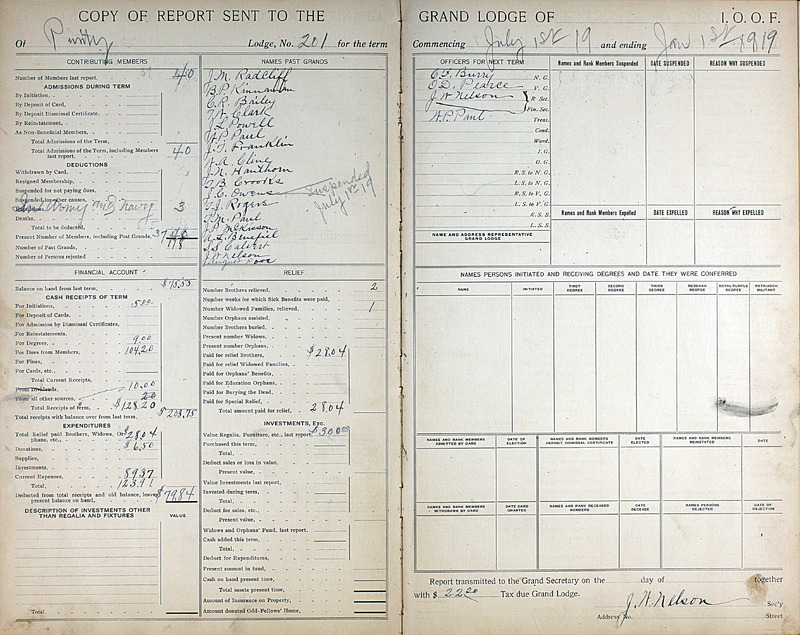 COPY OF REPORT SENT TO THE
Of Purity Lodge, No. 201 for the term
CONTRIBUTING MEMBERS
Number of Members last report, 40
ADMISSIONS DURING TERM
By Initiation,
By Deposit of Card,
By Deposit Dismissal Certificate,
By Reinstatement,
As Non-Beneficial Members,
Total Admissions of the Term,
Total Admissions of the Term, including Members last report, 40
DEDUCTIONS
Withdrawn by Card,
Resigned Membership,
Suspended for not paying dues,
Suspended for other causes,
In Army and Navy 3
Deaths,
Total to be deducted,
Present Number of Members, including Past Grands, 37
Number of Past Grands, 18
Number of Persons rejected
NAMES PAST GRANDS
J. M. Radcliff
B. P. Kinnaman
C. R. Bailey
J. A. Clark
J. L. Powell
A. P. Paul
J. T. Franklin
A. A. Cline
J. M. Hauthorn
T. B. Crooks
J. C. Owens Suspended July 1st 19
J. J. Rogers
J. M. Paul
J. P. McKisson
A. L. Benefiel
J. S. Calvert
J. W. Nelson
August
FINANCIAL ACCOUNT
Balance on hand from last term, $75.55
CASH RECEIPTS OF TERM
For Initiations, 5.00
For Deposit of Cards,
For Admission by Dismissal Certificates,
For Reinstatements,
For Degrees, 9.00
For Dues from Members, 104.20
For Fines,
For Cards, etc.,
Total Current Receipts,
From Dividends, 10.00
From all other sources, 20
Total Receipts of term, $128.20
Total receipts with balance over from last term, $203.75
EXPENDITURES
Total Relief paid Brothers, Widows, Orphans, etc., $28.04
Donations, $6.50
Supplies,
Investments,
Current Expenses, 89.37
Total, 123.91
Deducted from total receipts and old balance, leaves present balance on hand, $79.84
DESCRIPTION OF INVESTMENTS OTHER THAN REGALIA AND FIXTURES
VALUE
Total,
RELIEF
Number Brothers relieved, 2
Number weeks for which Sick Benefits were paid,
Number Widowed Families, relieved, 1
Number Orphans assisted,
Number Brothers buried,
Present number Widows,
Present number Orphans,
Paid for relief Brothers, $28.04
Paid for relief Widowed Families,
Paid for Orphans' Benefits,
Paid for Education Orphans,
Paid for Burying the Dead,
Paid for Special Relief,
Total amount paid for relief, 28.04
INVESTMENTS, Etc.
Value Regalia, Furniture, etc., last report, $300.00
Purchased this term,
Total,
Deduct sales or loss in value,
Present value,
Value Investments last report,
Invested during term,
Total,
Deduct for sales, etc.,
Present value,
Widows and Orphans' Fund, last report,
Cash added this term,
Total,
Deduct for Expenditures,
Present amount in fund,
Cash on hand present time,
Total assets present time,
Amount of Insurance on Property,
Amount donated Odd-Fellows' Home,
GRAND LODGE OF I. O. O. F.
Commencing July 1st 19 and ending Jan 1st 1919
OFFICERS FOR NEXT TERM
C. F. Burry N. G.
O. D. Pearce V. G.
J. W. Nelson R. Sec.
Fin. Sec.
A. P. Paul Treas.
Cond.
Ward.
I. G.
O. G.
R. S. to N. G.
L. S. to N. G.
R. S. to V. G.
L. S. to V. G.
R. S. S.
L. S. S.
NAME AND ADDRESS REPRESENTATIVE GRAND LODGE
Names and Rank Members Suspended
DATE SUSPENDED
REASON WHY SUSPENDED
Names and Rank Members Expelled
DATE EXPELLED
REASON WHY EXPELLED
NAMES PERSONS INITIATED AND RECEIVING DEGREES AND DATE THEY WERE CONFERRED
NAME
INITIATED
FIRST DEGREE
SECOND DEGREE
THIRD DEGREE
REBEKAH DEGREE
ROYAL PURPLE DEGREE
PATRIARCH MILITANT
NAMES AND RANK MEMBERS ADMITTED BY CARD
DATE OF ELECTION
NAMES AND RANK MEMBERS DEPOSIT DISMISSAL CERTIFICATE
DATE ELECTED
NAMES AND RANK MEMBERS REINSTATED
DATE
NAMES AND RANK MEMBERS WITHDRAWN BY CARD
DATE CARD GRANTED
NAMES AND RANK DECEASED MEMBERS
DATE DECEASE
NAMES PERSONS REJECTED
DATE OF REJECTION
Report transmitted to the Grand Secretary on the day of together
with $ 22.20 Tax due Grand Lodge.
J. W. Nelson Sec'y
Address No. Street